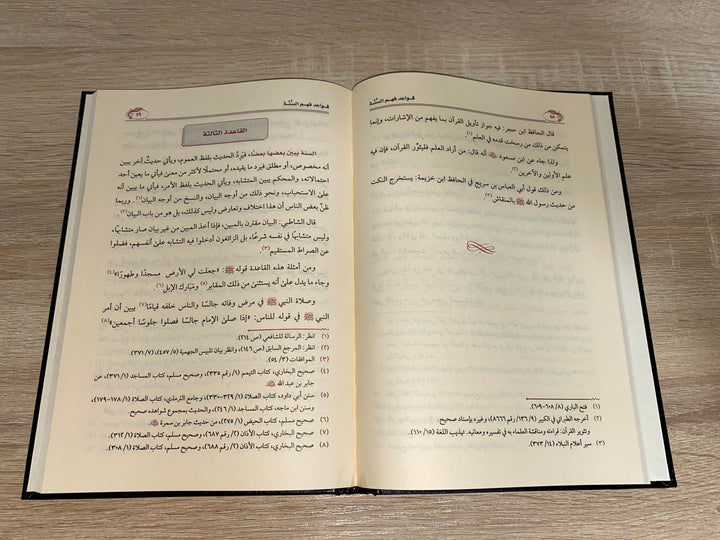 قواعد فهم السنة
٤٨
قال الحافظ ابن حجر: فيه جواز تأويل القرآن بما يفهم من الإشارات، وإنما
يتمكن من ذلك من رسخت قدمه في العلم(١).
ولذا جاء عن ابن مسعود ﷺ أنه قال: من أراد العلم فليثوّر القرآن، فإن فيه
علم الأولين والآخرين(٢).
ومن ذلك قول أبي العباس بن سريج في الحافظ ابن خزيمة: يستخرج النكت
من حديث رسول الله ﷺ بالمنقاش(٣).
(١) فتح الباري (٨/ ٦٠٨-٦٠٩).
(٢) أخرجه الطبراني في الكبير (٩/ ١٣٦/ رقم ٨٦٦٦)، وغيره بإسناد صحيح.
وتثوير القرآن: قراءته ومناقشة العلماء به في تفسيره ومعانيه. تهذيب اللغة (١٥/ ١١٠).
(٣) سير أعلام النبلاء (١٤/ ٣٧٣).
قواعد فهم السنة
٤٩
القاعدة الثالثة
السنة يبين بعضها بعضا، فيَرِدُ الحديث بلفظ العموم، ويأتي حديثٌ آخر يبين
أنه مخصوص، أو مطلق فيرد ما يقيده، أو محتملًا لأكثر من معنى فيأتي ما يعين أحد
احتمالاته، والمحكم يبين المتشابه، ويأتي الحديث بلفظ الأمر، فيأتي ما يبين أنه
على الاستحباب، ونحو ذلك من أوجه البيان(١)، والنسخ من أوجه البيان، وربما
ظنَّ بعض الناس أن هذا اختلاف وتعارض وليس كذلك، بل هو من باب البيان(٢).
قال الشاطبي: البيان مقترن بالمبين، فإذا أخذ المبين من غير بيان صار متشابهًا،
وليس متشابهًا في نفسه شرعًا، بل الزائغون أدخلوا فيه التشابه على أنفسهم، فضلوا
عن الصراط المستقيم(٣).
ومن أمثلة هذه القاعدة قوله ﷺ: «جعلت لي الأرض مسجدًا وطهورًا»(٤)
وجاء ما يدل على أنه يستثنى من ذلك المقابر(٥) ومَبَارك الإبل(٦).
وصلاة النبي ﷺ في مرض وفاته جالسًا والناس خلفه قيامًا(٧) يبين أن أمر
النبي ﷺ في قوله للناس: «إذا صلى الإمام جالسًا فصلوا جلوسًا أجمعين»(٨)
(١) انظر: الرسالة للشافعي (ص ٢١٤).
(٢) انظر: المرجع السابق (ص ١٤٦)، وانظر بيان تلبيس الجهمية (٥/ ٤٥٧)، (٧/ ٣٧١).
(٣) الموافقات (٣/ ٥٤).
(٤) صحيح البخاري، كتاب التيمم (١/ رقم ٣٣٥)، وصحيح مسلم، كتاب المساجد (١/ ٣٧١)، عن
جابر بن عبد الله ﷺ
(٥) سنن أبي داود، كتاب الصلاة (١/ ٣٢٩-٣٣٠)، وجامع الترمذي، كتاب الصلاة (١/ ١٧٨-١٧٩)،
وسنن ابن ماجه، كتاب المساجد (١/ ٢٤٦)، والحديث بمجموع شواهده صحيح.
(٦) صحيح مسلم، كتاب الحيض (١/ ٢٧٥)، من حديث جابر بن سمرة ﷺ
(٧) صحيح البخاري، كتاب الأذان (٢/ رقم ٦٨٧)، وصحيح مسلم، كتاب الصلاة (١/ ٣١٢).
(٨) صحيح البخاري، كتاب الأذان (٢/ رقم ٦٨٨)، وصحيح مسلم، كتاب الصلاة (١/ ٣٠٨).